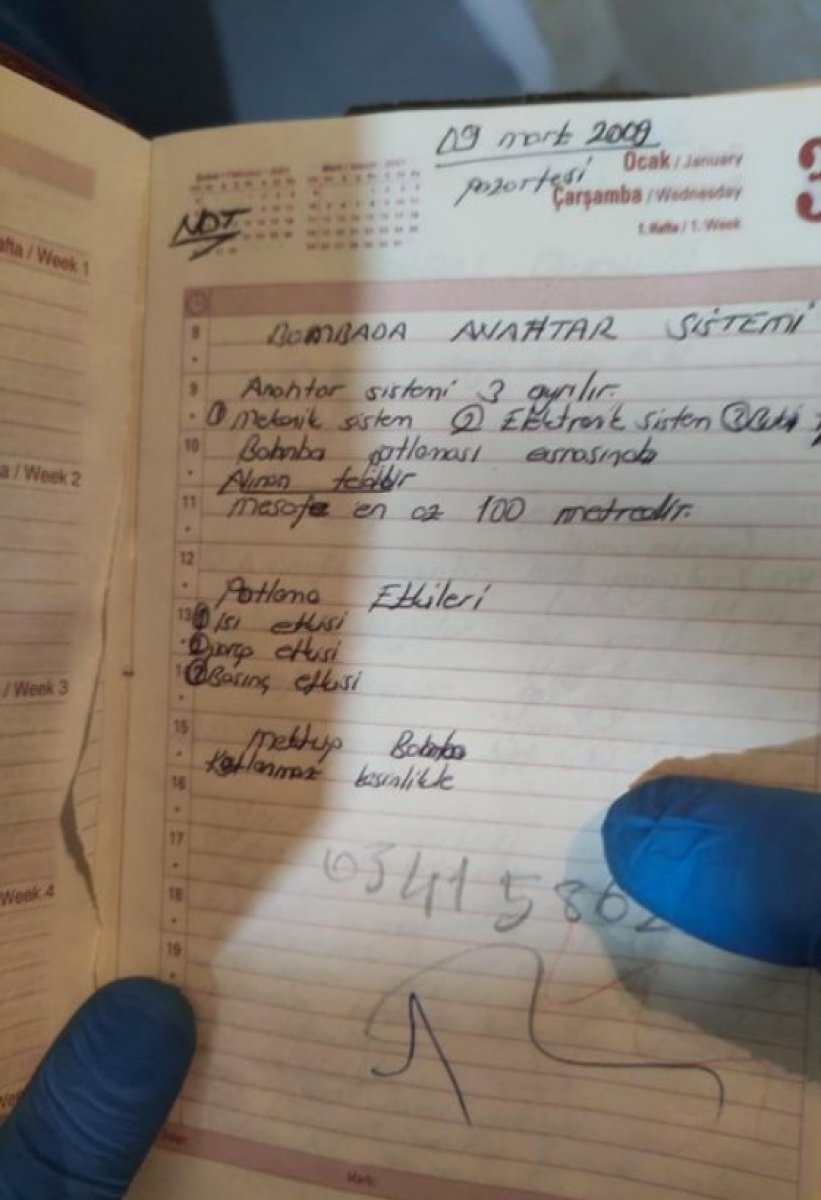 09 mart 2009
Ocak / January
pazartesi
Çarşamba / Wednesday
3
1. Hafta / 1. Week
NOT
afta / Week 1
8
BOMBADA ANAHTAR SİSTEMİ
9
Anahtar sistemi 3 ayrılır.
① Mekanik sistem ② Elektronik sistem ③
10
Bobmba patlaması esnasında
a / Week 2
Alınan tedbir
11
mesafe en az 100 metredir.
12
Patlama Etkileri
13
① Isı etkisi
② parça etkisi
③ Basınç etkisi
/ Week 3
15
Mektup Bobmba
Katlanmaz kesinlikle
16
17
0341 5862
18
Week 4
19